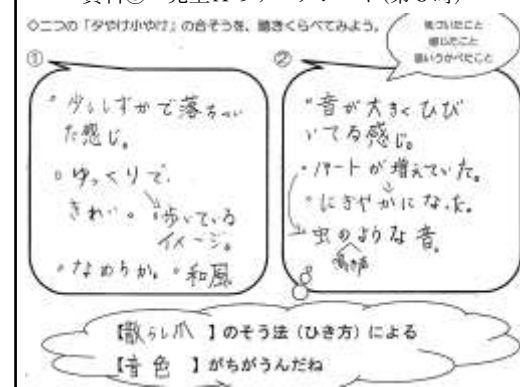 ◇二つの「夕やけ小やけ」の合そうを、聴きくらべてみよう。
気づいたこと
感じたこと
思いうかべたこと
①
・少ししずかで落ちつい
た感じ。
・ゆっくりで、
きれい。・歩いている
イメージ。
・なめらか。・和風
②
・音が大きくひび
いてる感じ。
・パートが増えていた。
・にぎやかになった。
虫のような音。
【散らし爪 】のそう法（ひき方）による
【音色 】がちがうんだね